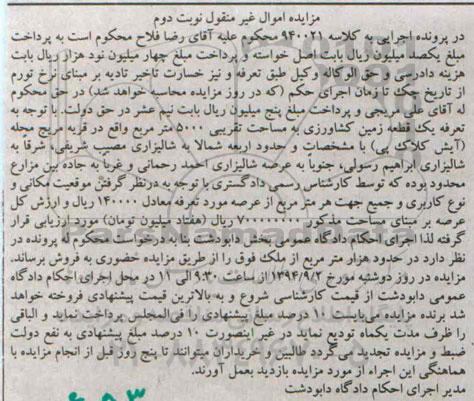 مزایده اموال غیر منقول نوبت دوم
در پرونده اجرایی به کلاسه ۹۴۰۰۲۱ محکوم علیه آقای رضا فلاح محکوم است به پرداخت
مبلغ یکصد میلیون ریال بابت اصل خواسته و پرداخت مبلغ چهار میلیون نود هزار ریال بابت
هزینه دادرسی و حق الوکاله وکیل طبق تعرفه و نیز خسارت تاخیر تادیه بر مبنای نرخ تورم
از تاریخ چک تا زمان اجرای حکم (که در روز مزایده محاسبه خواهد شد) در حق محکوم
له آقای علی مریجی و پرداخت مبلغ پنج میلیون ریال بابت نیم عشر در حق دولت با توجه به
تعرفه یک قطعه زمین کشاورزی به مساحت تقریبی ۵۰۰۰ متر مربع واقع در قریه مریج محله
(آیش کلاک بی) با مشخصات و حدود اربعه شمالا به شالیزاری مصیب شریفی، شرقا به
شالیزاری ابراهیم رسولی، جنوباً به عرصه شالیزاری احمد رحمانی و غربا به جاده بین مزارع
محدود بوده که توسط کارشناس رسمی دادگستری با توجه به درنظر گرفتن موقعیت مکانی و
نوع کاربری و جمیع جهت هر متر مربع از عرصه مورد تعرفه معادل ۱۴۰۰۰۰ ریال و ارزش کل
عرصه بر مبنای مساحت مذکور ۷۰۰۰۰۰۰۰۰ ریال (هفتاد میلیون تومان) مورد ارزیابی قرار
گرفته لذا اجرای احکام دادگاه عمومی بخش دابودشت بنا به درخواست محکوم له پرونده در
نظر دارد در حدود هزار متر مربع از ملک فوق را از طریق مزایده حضوری به فروش برساند.
مزایده در روز دوشنبه مورخ ۱۳۹۴/۹/۲ از ساعت ۹:۳۰ الی ۱۱ در محل اجرای احکام دادگاه
عمومی دابودشت از قیمت کارشناسی شروع و به بالاترین قیمت پیشنهادی فروخته خواهد
شد برنده مزایده می‌بایست ۱۰ درصد مبلغ پیشنهادی را فی‌المجلس پرداخت نماید و الباقی
را ظرف مدت یکماه تودیع نماید در غیر اینصورت ۱۰ درصد مبلغ پیشنهادی به نفع دولت
ضبط و مزایده تجدید می‌گردد طالبین و خریداران میتوانند تا پنج روز قبل از انجام مزایده با
هماهنگی این اجراء از مورد مزایده بازدید بعمل آورند.
مدیر اجرای احکام دادگاه دابودشت
ParsNamadData